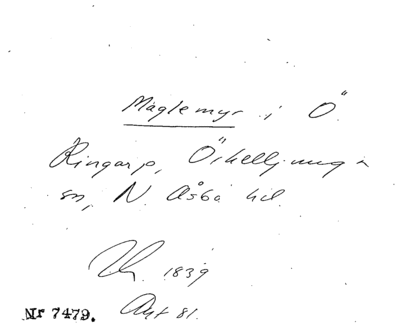 Maglemyr i Ö
Ringarp, Örkelljunga
sn, N. Åsbo hd.
1839
Nr 7479. Akt 81.